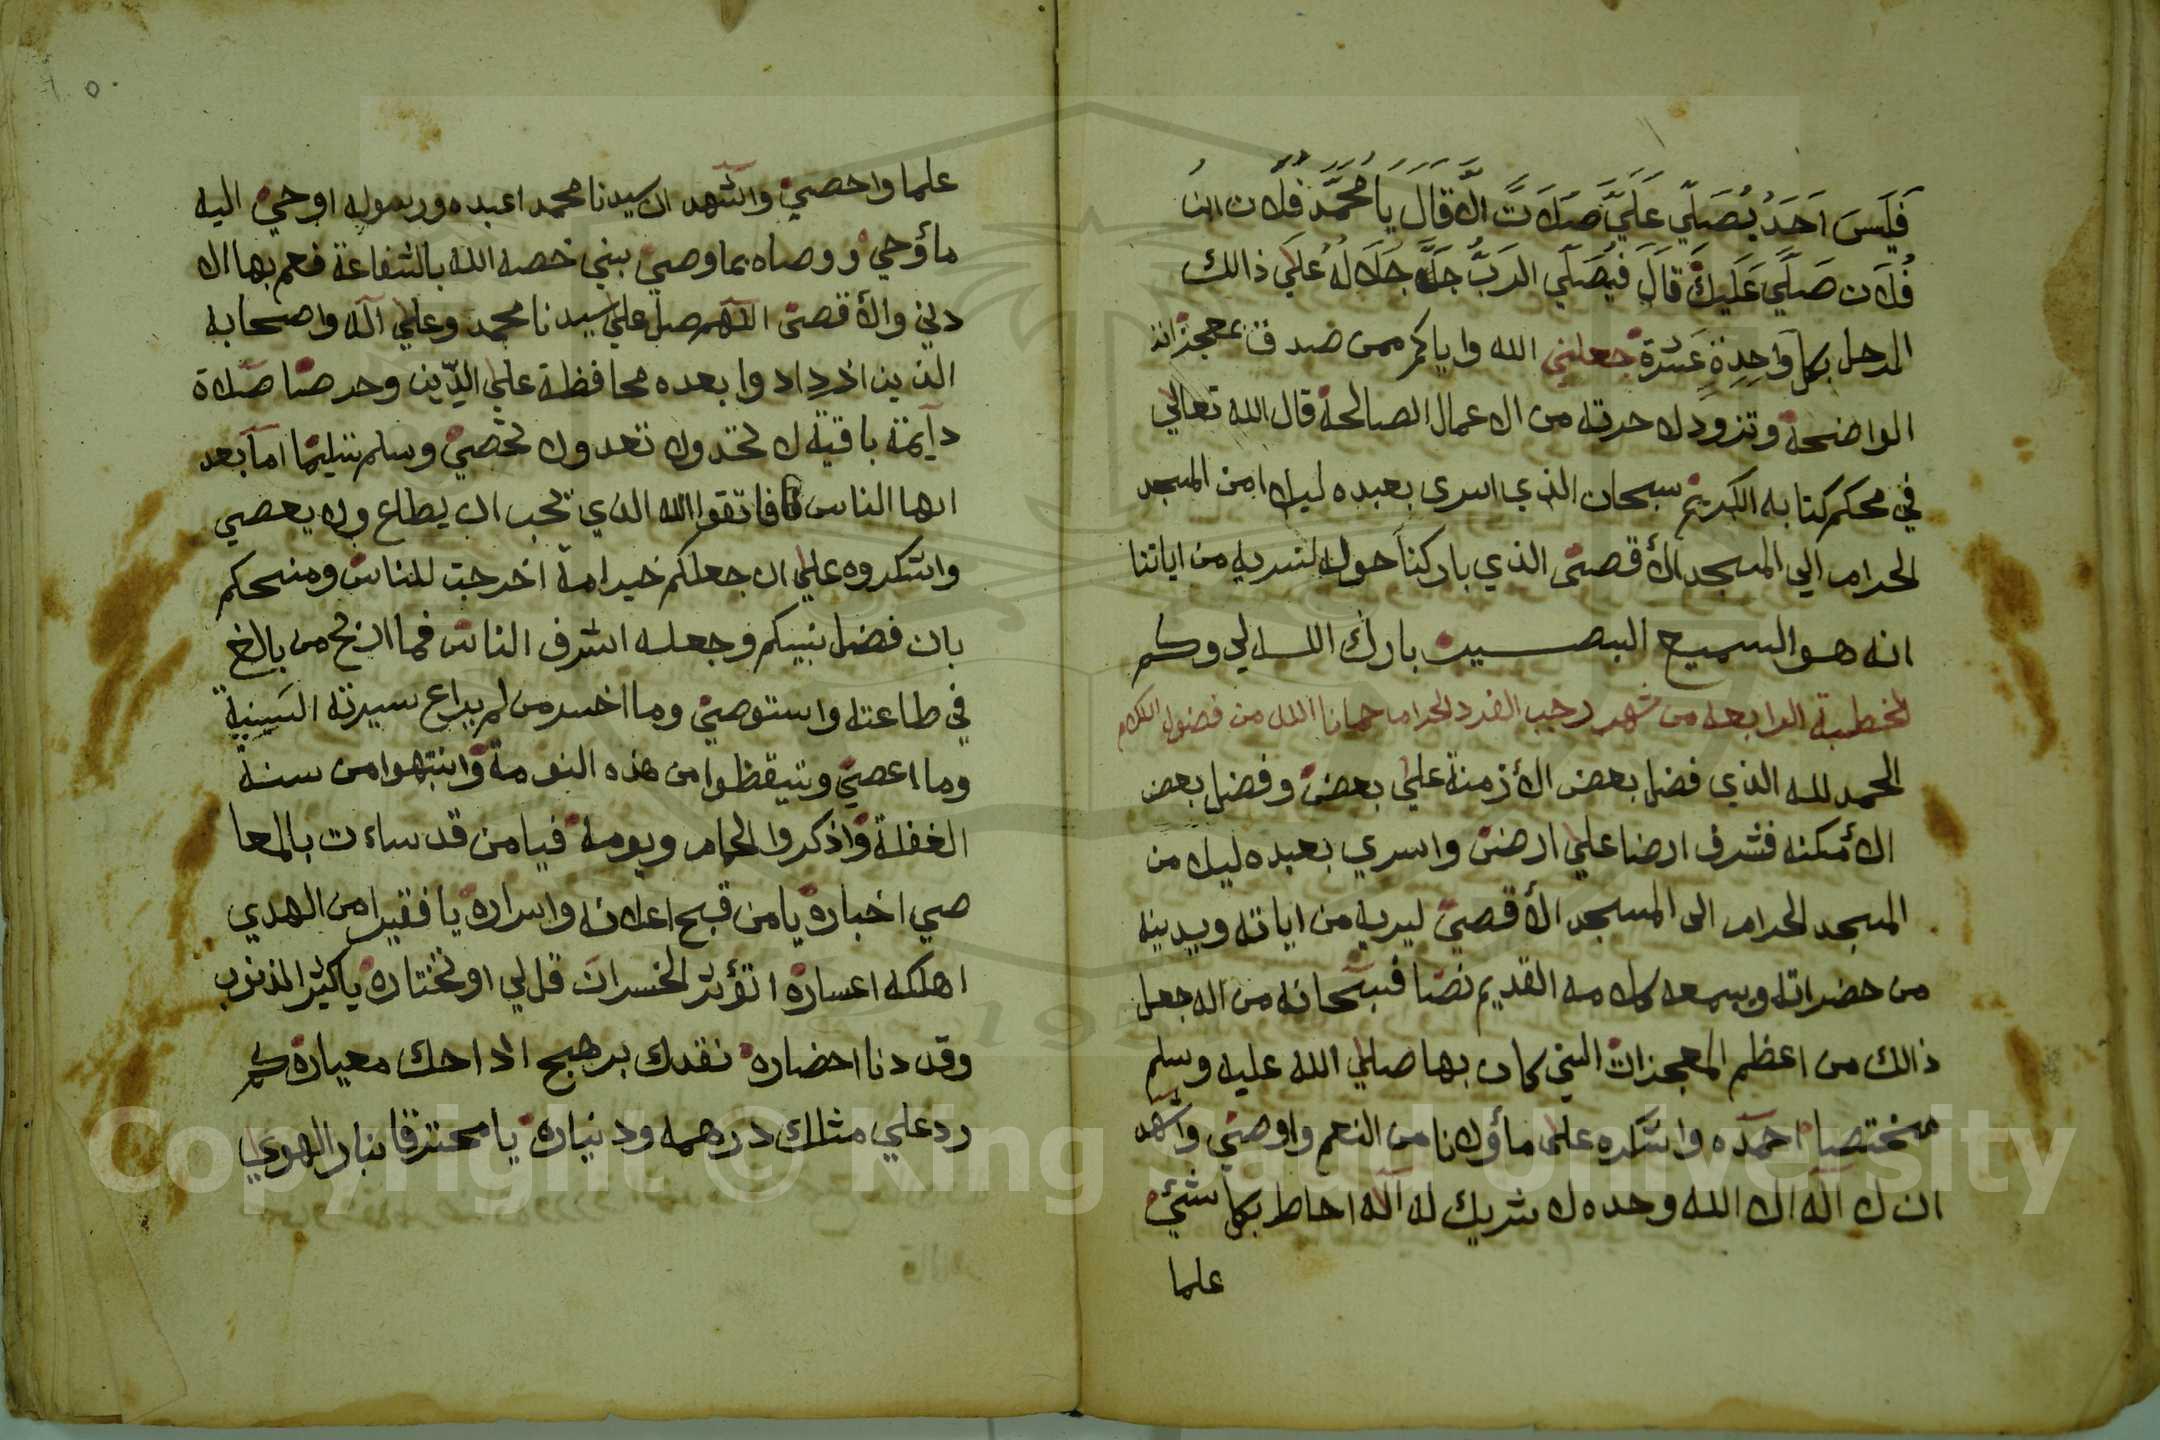 فَلَيسَ اَحَدُ يُصَلّي عَلَيَّ صَلَاتً الَّا قَالَ يَا مُحَمَّدُ فُلَان ابنُ
فُلَان صَلَّي عَلَيكَ قَالَ فَيُصَلّي الرَبُّ جَلَّ جَلَالُهُ عَلَي ذالك
الرجل بكل وَاحِدِةٍ عَشرَة جعلني الله واياكم ممن صدق بمعجزاته
الواضحة وتزود لاخرته من الاعمال الصالحة قال الله تعالي
في محكم كتابه الكريم سبحان الذي اسرى بعبده ليلا من المسجد
الحرام الي المسجد الأقصى الذي باركنا حوله لنريه من اياتنا
انه هو السميع البصير بارك الله لي ولكم
الخطبة الرابعة من شهر رجب الفرد الحرام حمانا الله من فضول الكلام
الحمد لله الذي فضل بعض الأزمنة علي بعض وفضل بعض
الأمكنه فشرف ارضا علي ارض واسري بعبده ليلا من
المسجد الحرام الى المسجد الأقصي ليريه من اياته ويدينه
من حضراته ويسمعه كلامه القديم نصا فسبحانه من اله جعل
ذالك من اعظم المعجزات التي كان بها صلي الله عليه وسلم
مختصا احمده واشكره على ما أولانا من النعم واوصي واشهد
ان لا آله الا الله وحده لا شريك له آله احاط بكل شئ
علما
علما واحصي واشهد ان سيدنا محمد اعبده ورسوله اوحي اليه
ما أوحي ووصاه بما وصي نبي خصه الله بالشفاعة فعم بها الا
دني والأقصى اللهم صل علي سيدنا محمد وعلي آله واصحابه
الذين ازدادوا بعده محافظة علي الدّين وحرصا صلاة
دآيمة باقية لا تحد ولا تعد ولا تحصي وسلم تسليما اما بعد
ايها الناس فاتقوا الله الذي يجب ان يطاع ولا يعصي
واشكروه علي ان جعلكم خير امة اخرجت للناس ومنحكم
بان فضل نبيكم وجعله اشرف الناس فما اربح من بالغ
في طاعته واستوصي وما اخسر من لم يراع سيرته السَنِية
وما اعصي وتيقظوا من هذه النومة وانتبهوا من سنة
الغفلة واذكروا الحمام ويومه فيا من قد ساءت بالمعا
صي اخباره يا من قبح اعلانه واسراره يا فقيرا من الهدي
اهلكه اعساره اتؤثر الخسران قل لي او تختاره يا كثير الذنوب
وقد دنا احضاره نقدك بهرج اذا حك معياره كم
رد علي مثلك درهمه ودنياره يا محترقا بنار الهوي
Copyright © King Saud University